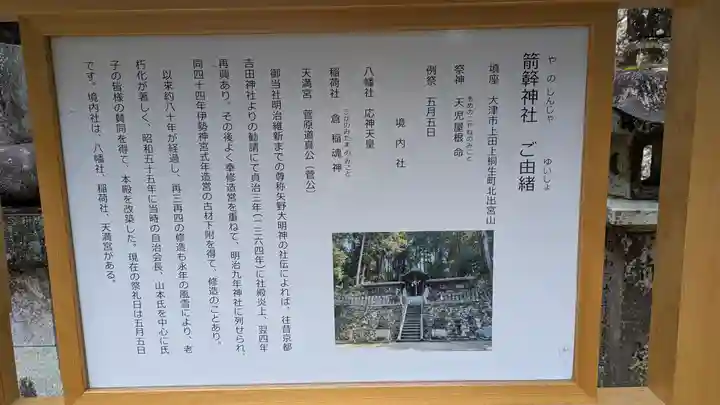 やのしんじゃ ゆいしょ
箭簳神社 ご由緒
鎮座 大津市上田上桐生町北出宮山
祭神 天児屋根命
あめのこやねのみこと
例祭 五月五日
境内社
八幡社 応神天皇
稲荷社 倉稲魂神
天満宮 菅原道真公(菅公)
御当社明治維新までの尊称矢野大明神の社伝によれば、往昔京都
吉田神社よりの勧請にて貞治三年(一三六四年)に社殿炎上、翌四年
再興あり。その後よく奉修造営を重ねて、明治九年神社に列せられ、
同四十四年伊勢神宮式年造営の古材下附を得て、修造のことあり。
以来約八十年が経過し、再三再四の修造も永年の風雪により、老
朽化が著しく、昭和五十五年に当時の自治会長、山本氏を中心に氏
子の皆様の賛同を得て、本殿を改築した。現在の祭礼日は五月五日
です。境内社は、八幡社、稲荷社、天満宮がある。